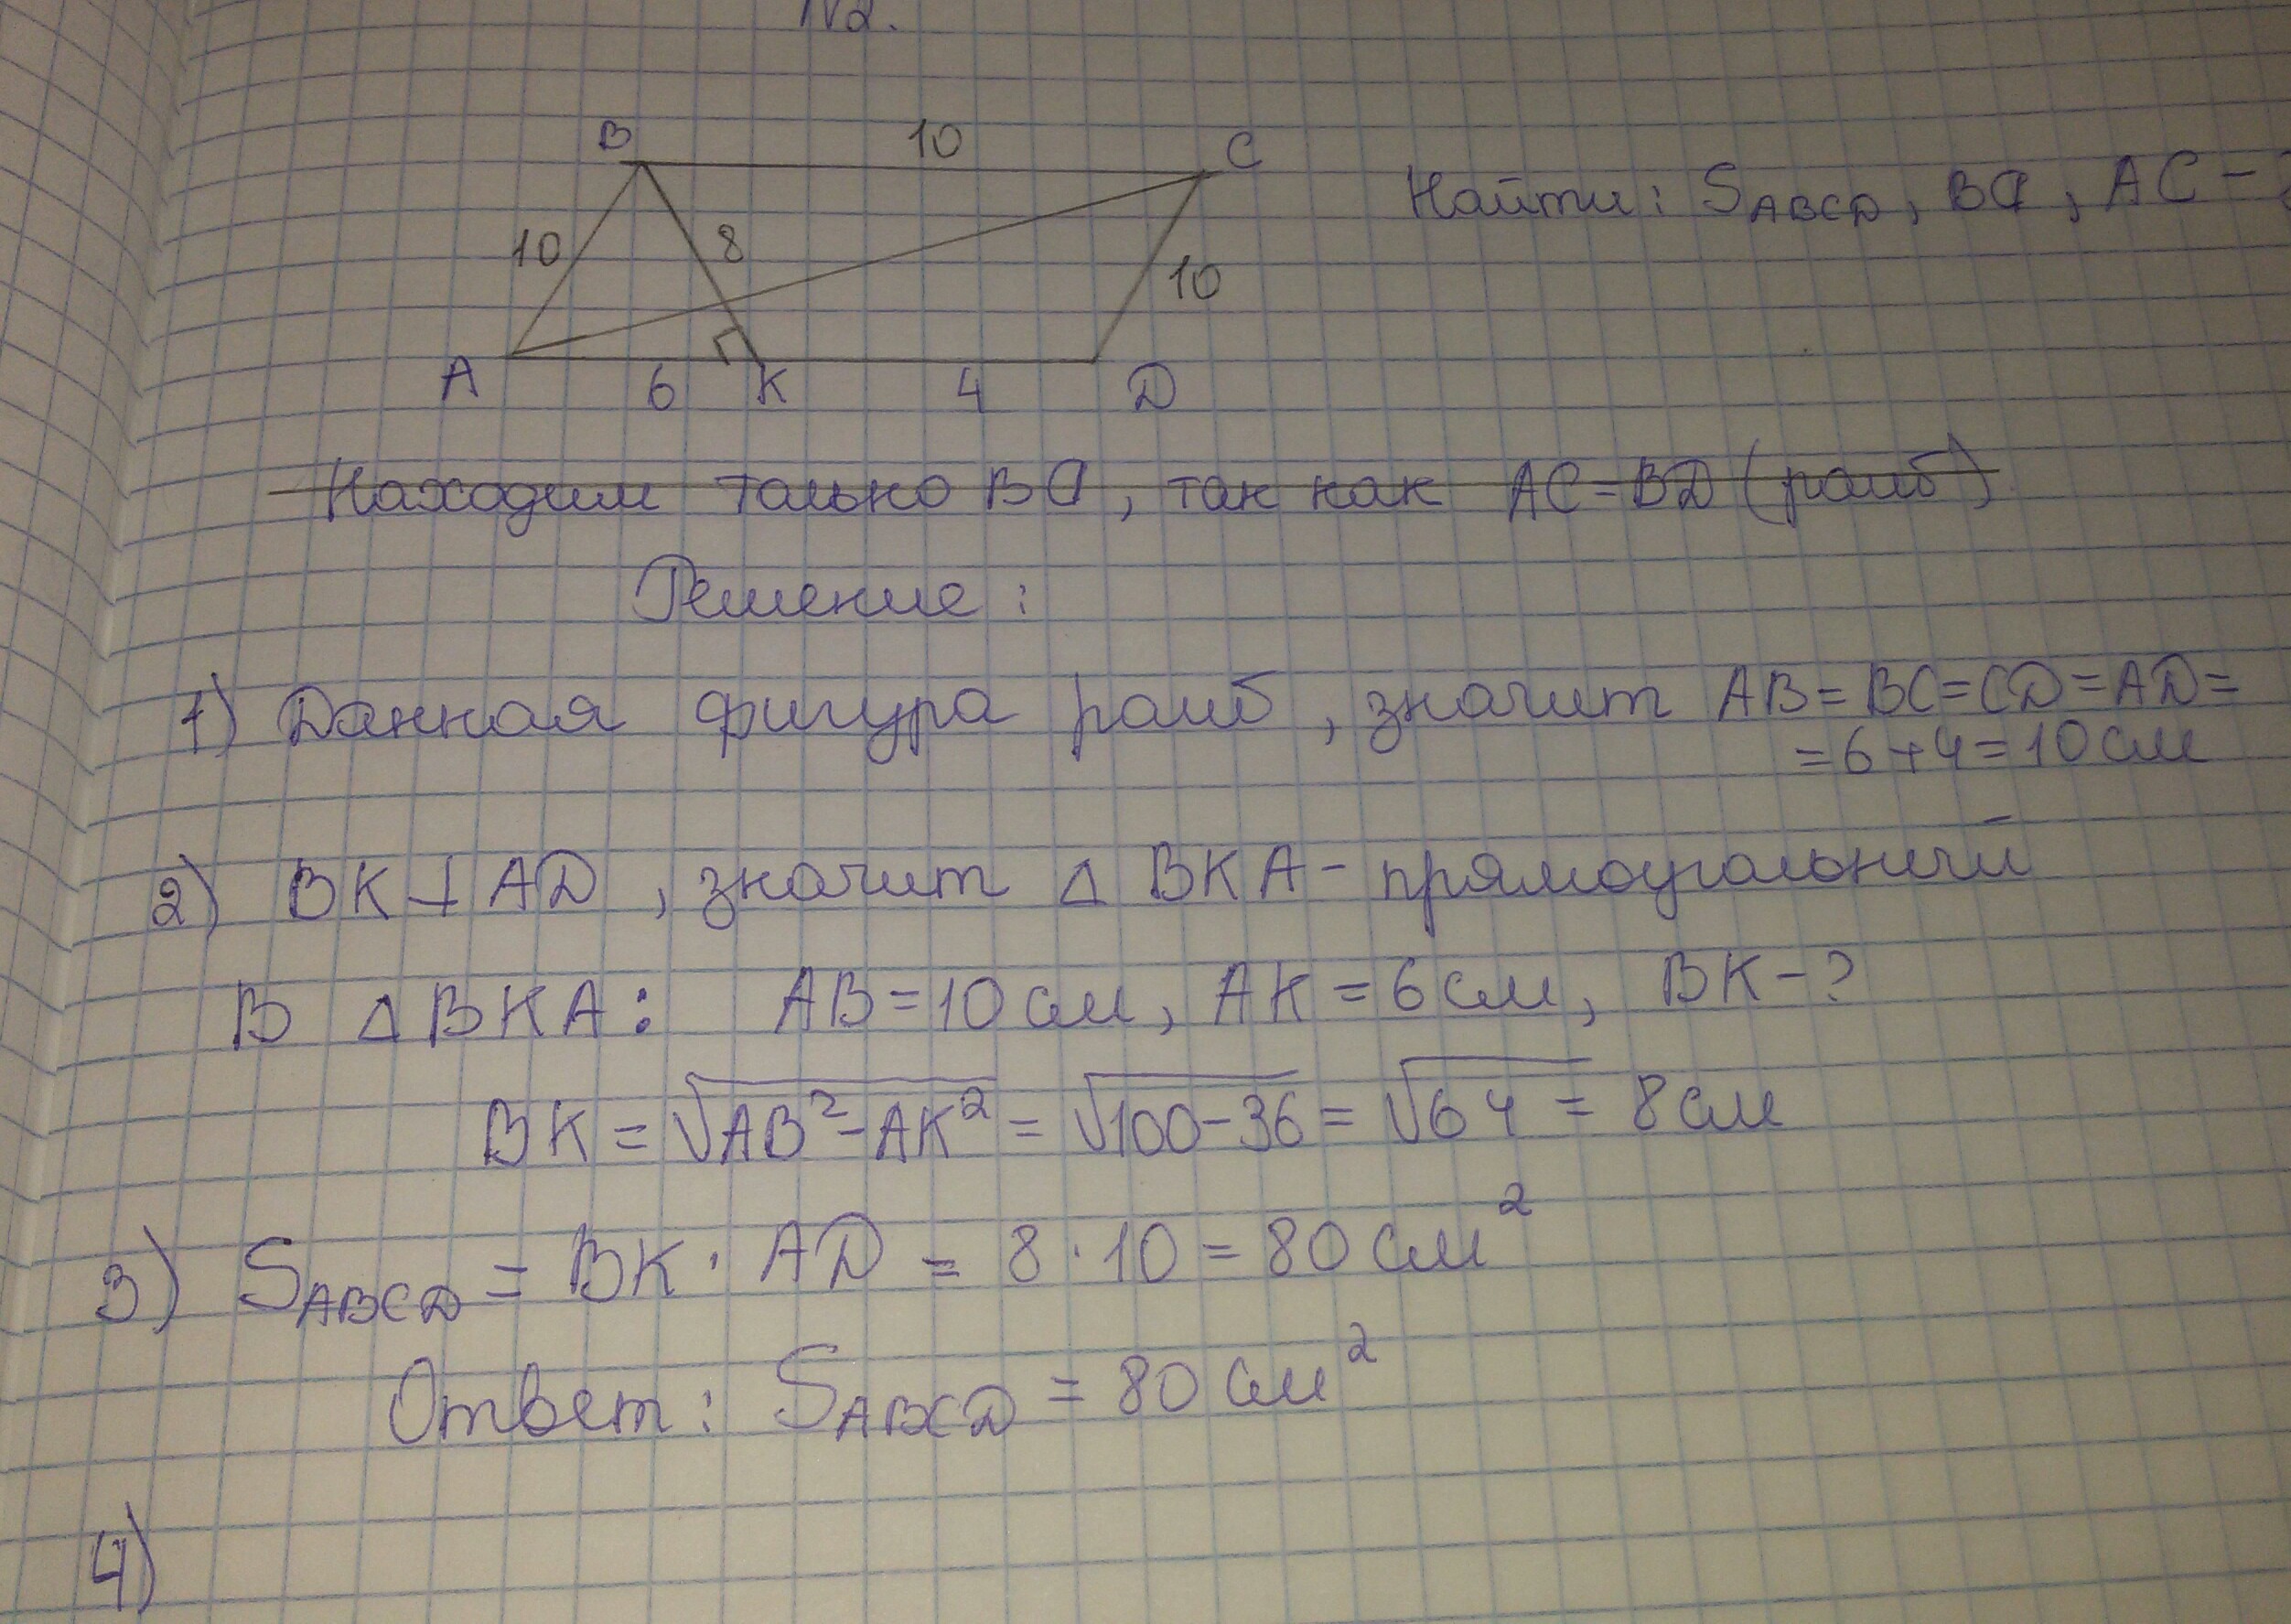 №2.
B 10 C
10 8 10
A 6 K 4 D
Найти: S_ABCD, BD, AC - ?
Находим только BD, так как AC=BD (ромб)
Решение:
1) Данная фигура ромб, значит AB=BC=CD=AD=
=6+4=10см
2) BK⊥AD, значит △ BKA - прямоугольный
В △BKA: AB=10см, AK=6см, BK-?
BK=√AB²-AK² = √100-36 = √64 = 8см
3) S_ABCD = BK · AD = 8·10 = 80 см²
Ответ: S_ABCD = 80 см²
4)